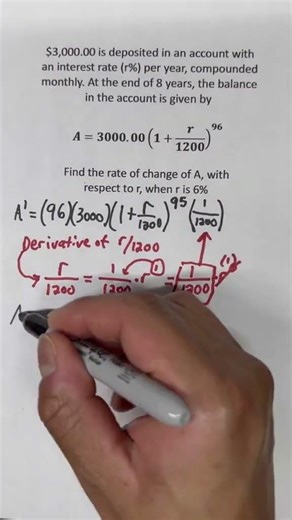 $3,000.00 is deposited in an account with
an interest rate (r%) per year, compounded
monthly. At the end of 8 years, the balance
in the account is given by
A = 3000.00 (1 + r/1200)^96
Find the rate of change of A, with
respect to r, when r is 6%
A' = (96)(3000)(1 + r/1200)^95 (1/1200)
Derivative of r/1200
r/1200 = 1/1200 · r^① = (1/1200)
A